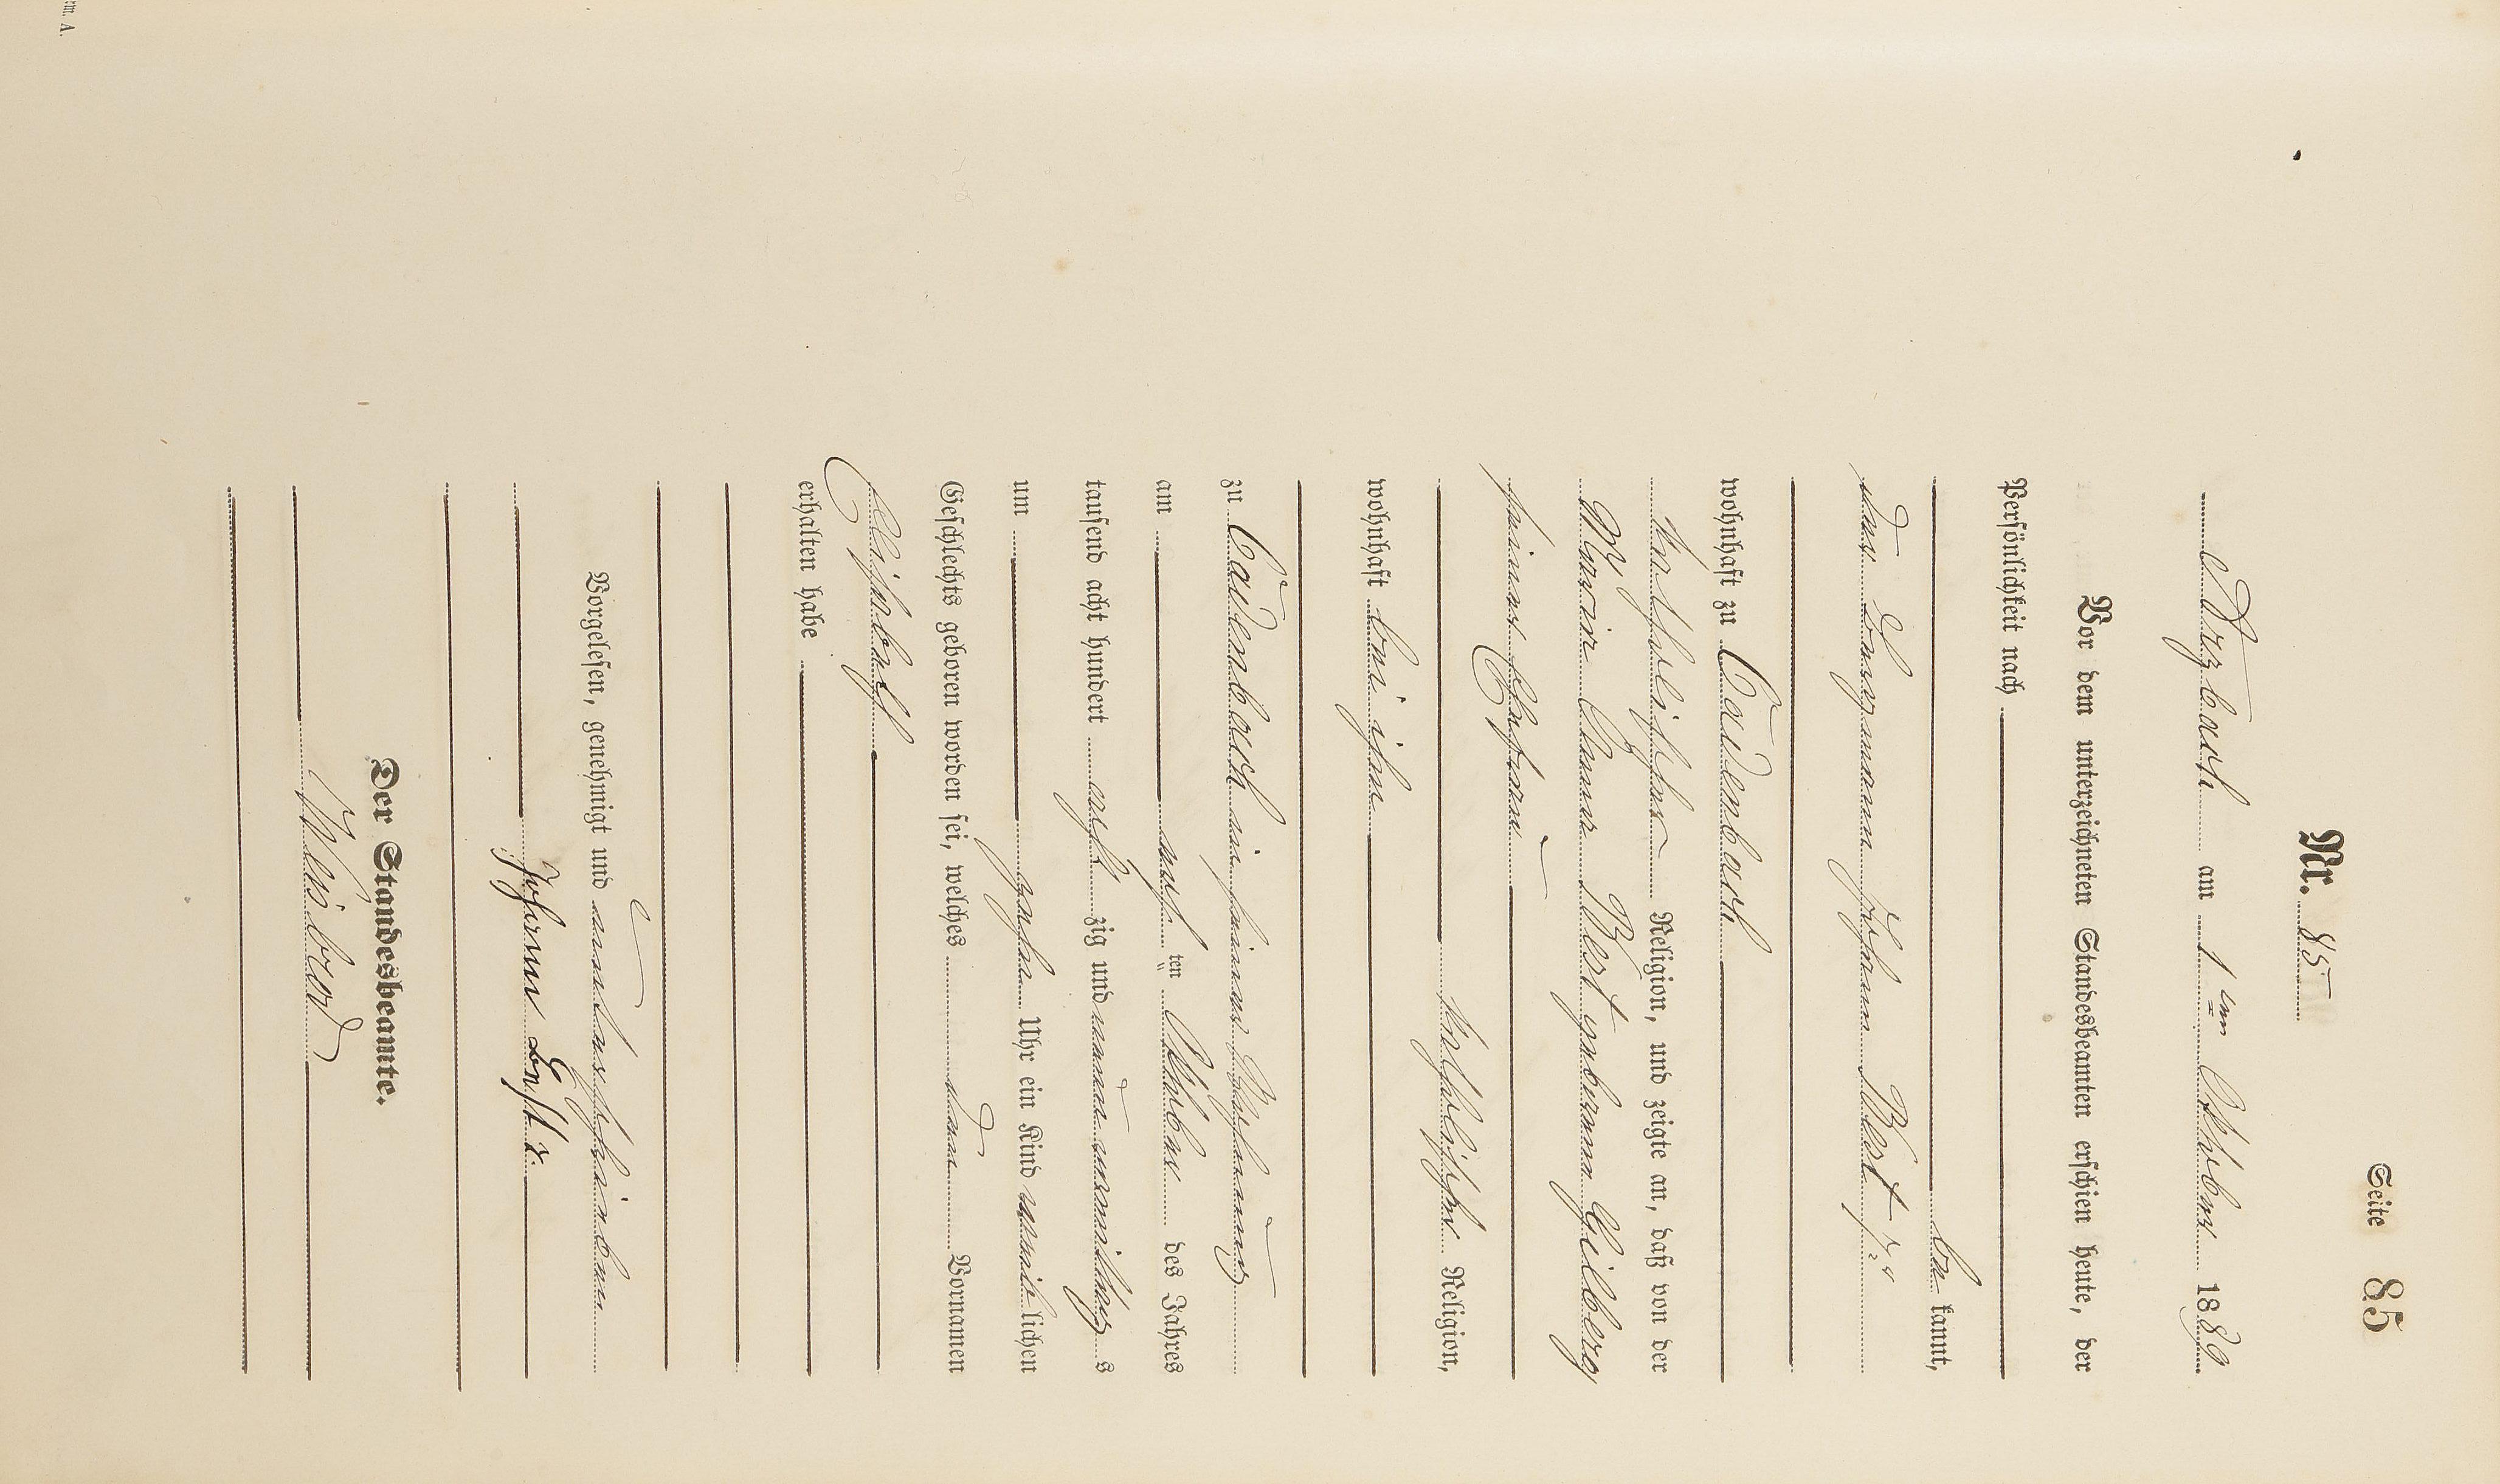 Seite 85
Nr. 85
Arzbach am 1ten Oktober 1889
Vor dem unterzeichneten Standesbeamten erschien heute, der
Persönlichkeit nach
be kannt,
der Bergmann Johann Best
wohnhaft zu Cadenbach
katholischer Religion, und zeigte an, daß von der
Maria Anna Best geborenen Gilberg
seiner Ehefrau
katholischer Religion,
wohnhaft bei ihm
zu Cadenbach in seiner Wohnung
am ten Oktober des Jahres
tausend acht hundert acht zig und neun vormittag s
um zehn Uhr ein Kind weib lichen
Geschlechts geboren worden sei, welches den Vornamen
Elisabeth
erhalten habe
Vorgelesen, genehmigt und unterschrieben
Johann Best
Der Standesbeamte.
Weisbrod
rm. A.